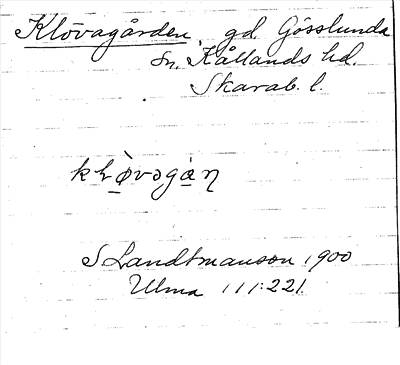 Klövagården, gd. Gösslunda
sn. Kållands hd.
Skarab. l.
S Landtmanson 1900
Ulma 111:221.